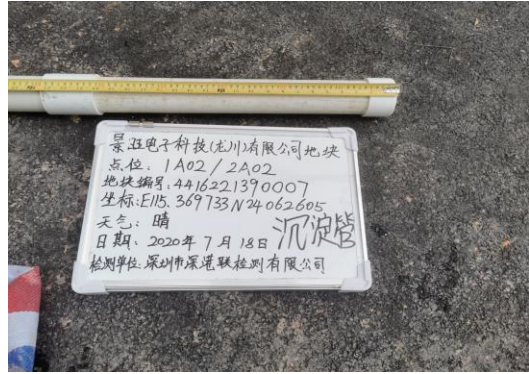 景旺电子科技(龙川)有限公司地块
点位: 1A02/2A02
地块编号:4416221390007
坐标:E115.369733 N24062605
天气: 晴
日期: 2020年7月18日
沉淀管
检测单位:深圳市深港联检测有限公司